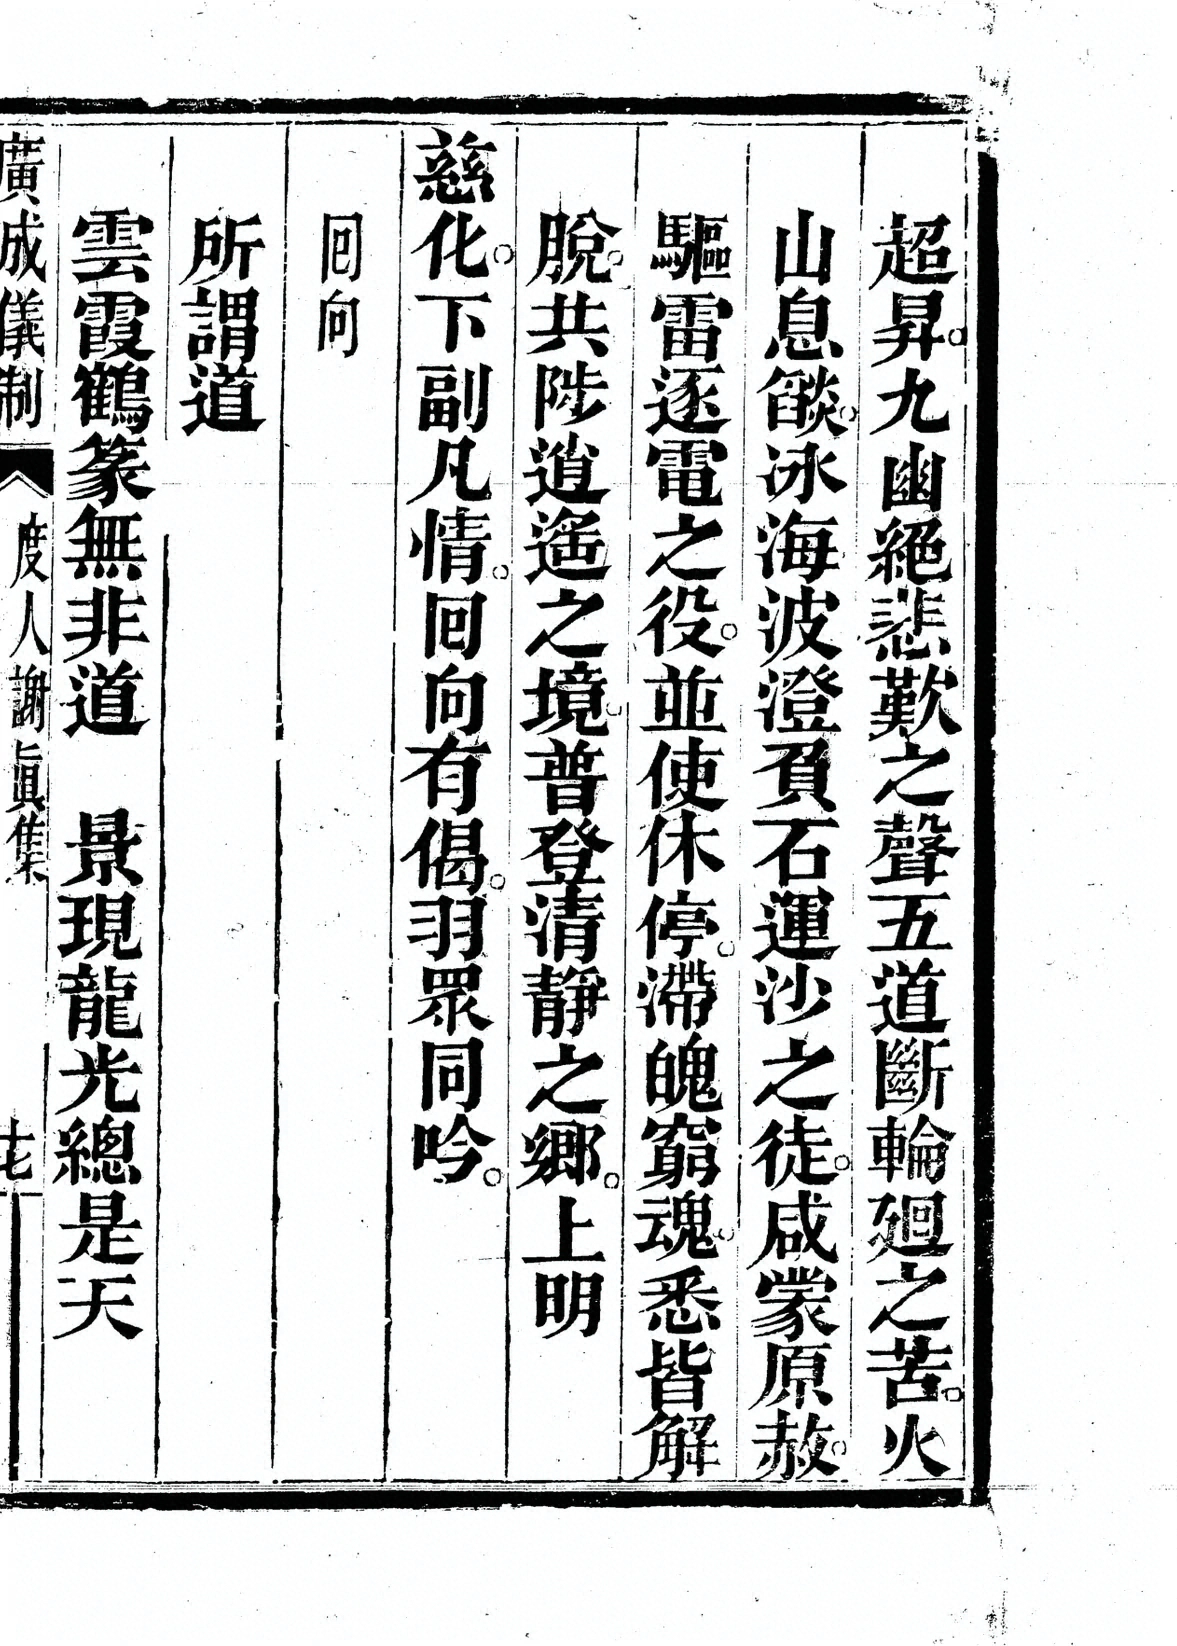 超昇。九幽絕悲歎之聲五道斷輪廻之苦。火
山息燄。冰海波澄負石運沙之徒。咸蒙原赦。
驅雷逐電之役。並使休停。滯魄窮魂。悉皆解
脫。共陟逍遙之境。普登清靜之鄉。上明
慈化。下副凡情。囘向有偈。羽眾同吟。
囘向
所謂道
雲霞鶴篆無非道　景現龍光總是天
廣成儀制　度人謝眞集　七